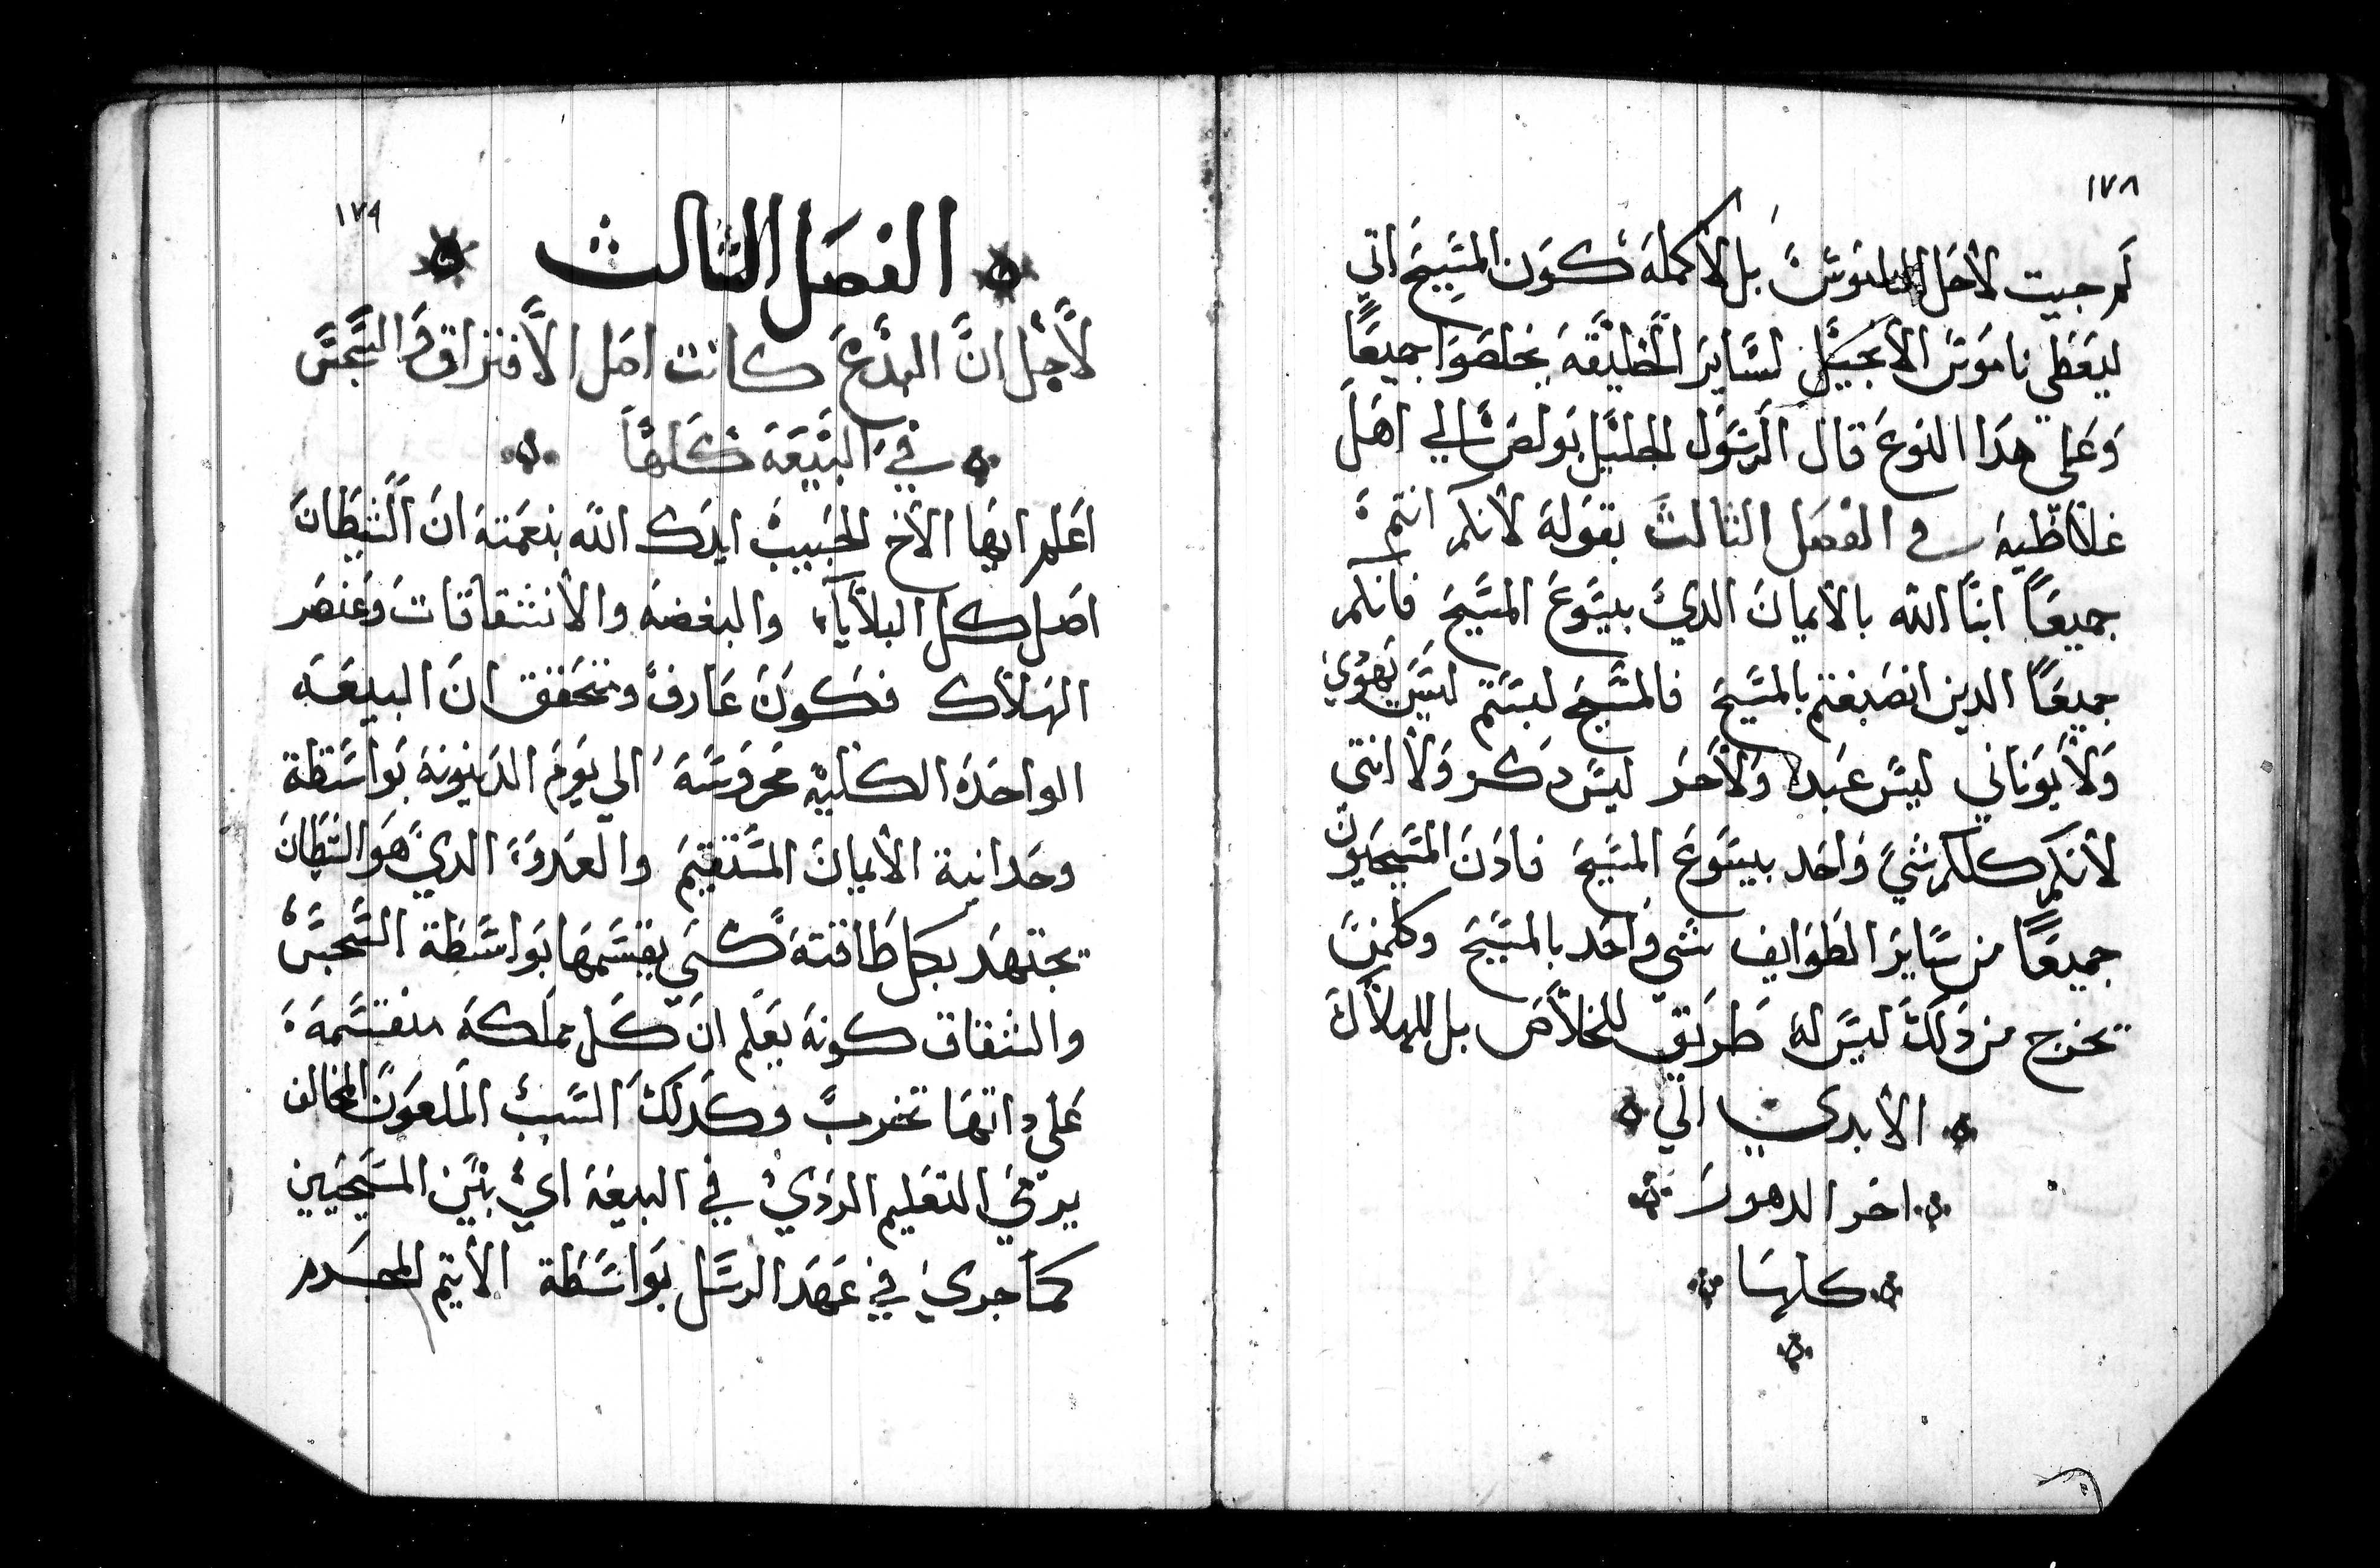 ١٧٨
لم جيت لاحل الناموس بل لاكمله كون المسيح اتي
ليعطي ناموس الانجيل لساير الخليقه يخلصوا جميعًا
وعلي هدا النوع قال الرسول الجليل بولص الي اهل
غلاطيه في الفصل الثالث بقوله لانكم انتم
جميعًا ابنا الله بالايمان الدي بيسوع المسيح فانكم
جميعًا الدين انصبغتم بالمسيح فالمسيح لبستم ليس يهودي
ولا يوناني ليس عبد ولا حر ليس دكر ولا انثي
لانكم كلكم شي واحد بيسوع المسيح فادن المسيحيون
جميعًا من ساير الطوايف شي واحد بالمسيح وكلمن
يخرج من دلك ليس له طريق للخلاص بل للهلاك
الابدي الي
اخر الدهور
كلها
١٧٩
الفصل الثالث
لاجل ان البدع كانت اصل الافتراق والسجس
في البيعه كلها
اعلم ايها الاخ الحبيب ايدك الله بنعمته ان الشيطان
اصل كل البلايا والبغضه والانشقاقات وعنصر
الهلاك فكون عارف ومتحقق ان البيعه
الواحده الكليه محروسه الي يوم الدينونه بواسطة
وحدانية الايمان المستقيم والعدو الدي هو الشيطان
يجتهد بكل طاقته كي يقسمها بواسطة السجس
والشقاق كونه يعلم ان كل مملكه منقسمه
علي داتها تخرب وكدلك السبب الملعون المخالف
يرمي التعليم الردي في البيعه اي بين المسيحيين
كما جري في عهد الرسل بواسطة الاثيم المجدم